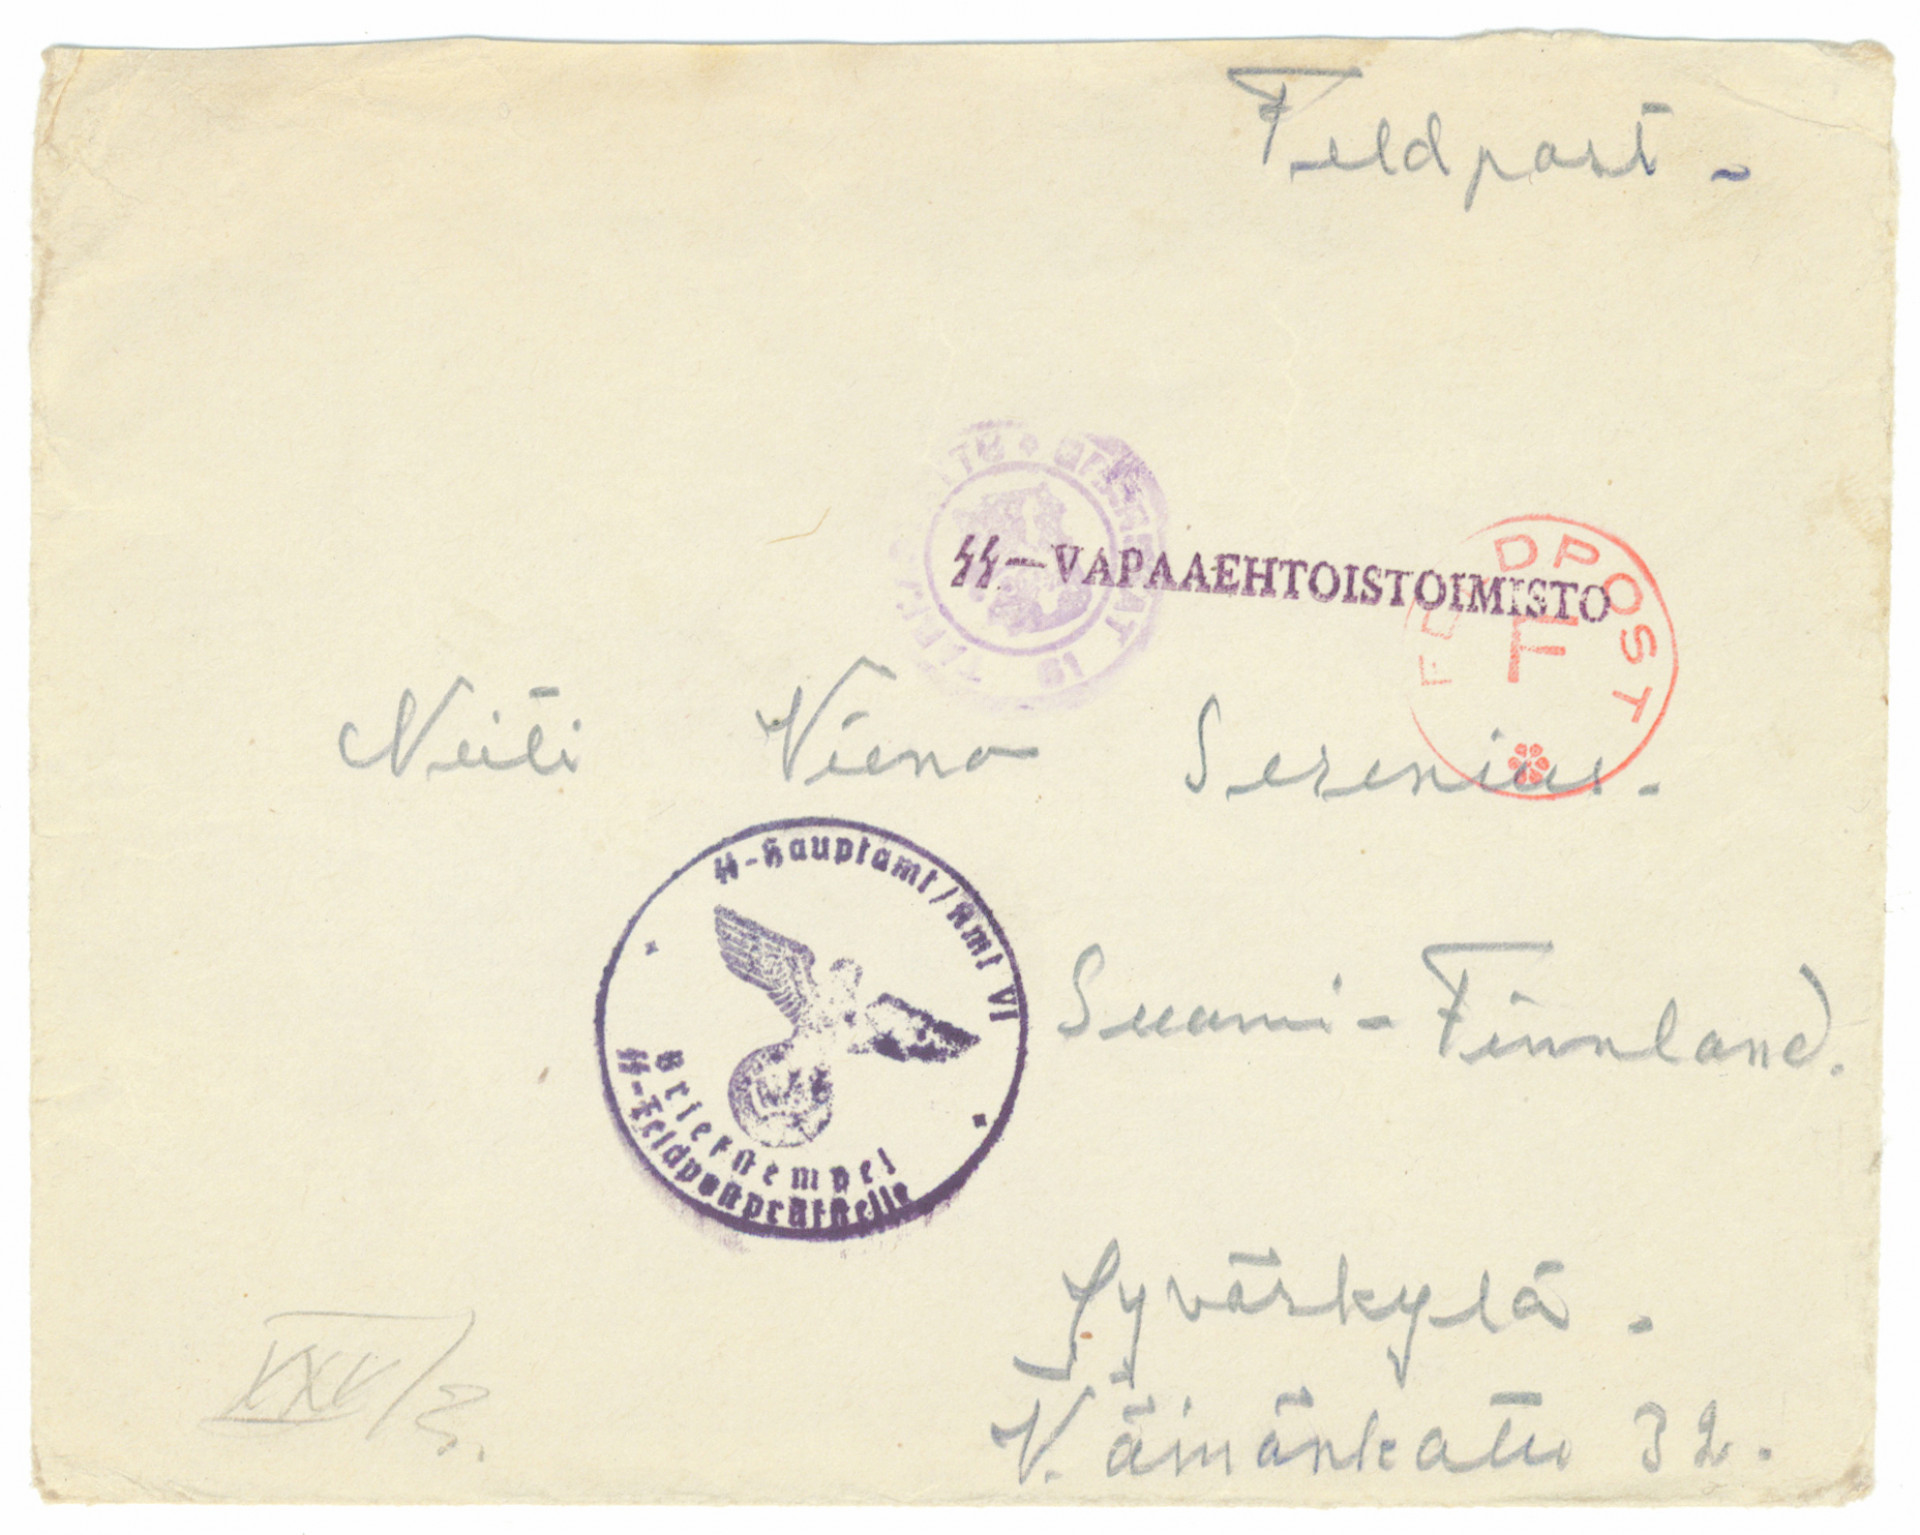 Feldpost -
SS-VAPAAEHTOISTOIMISTO
FELDPOST
F
Neiti Vieno Serenius.
SS-Hauptamt/Amt VI
Briefstempel
SS-Feldpostprüfstelle
Suomi - Finnland.
Jyväskylä.
Väinönkatu 32.
XXV/3.